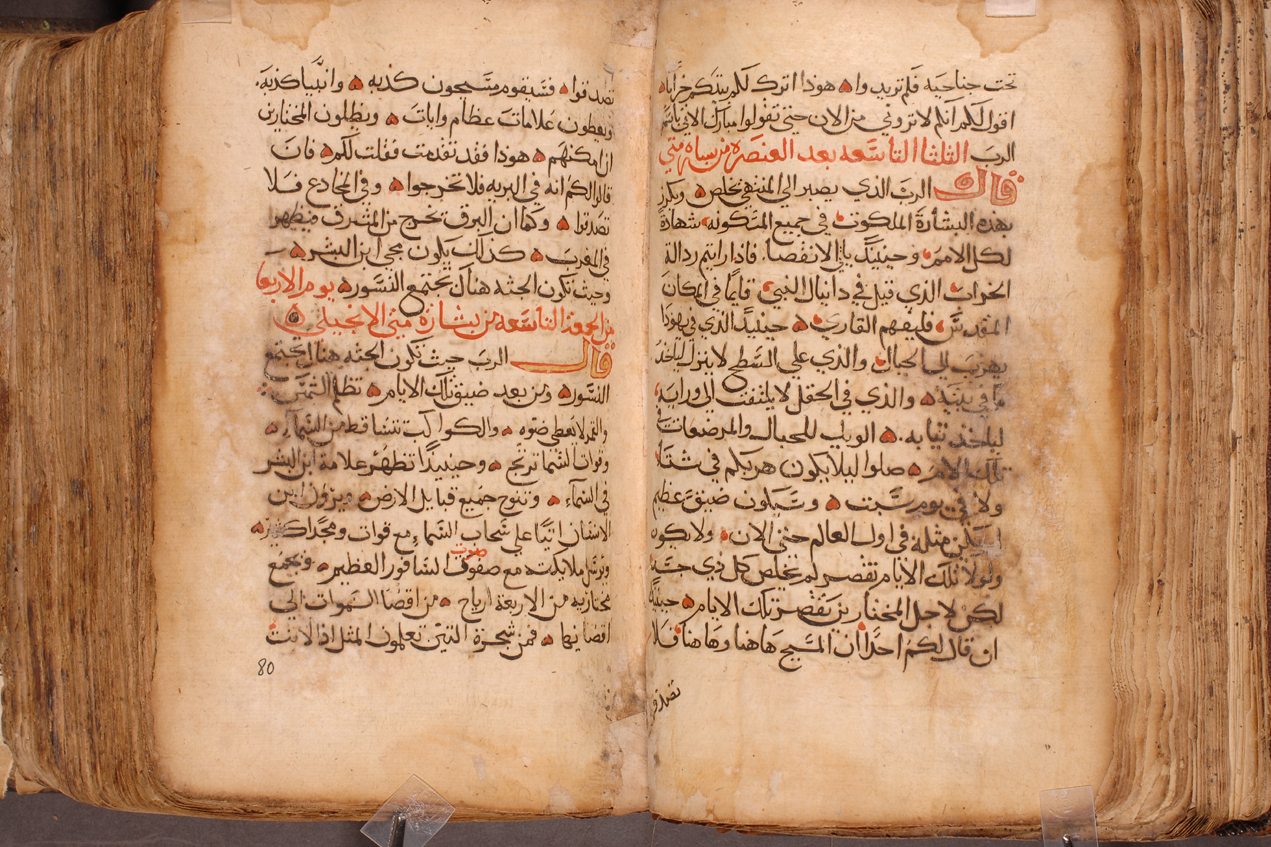 تحت جناحيه فلم تريدوا هوذا اترك لكم بيتكم خرابا
اقول لكم انكم لا تروني من الان حتى تقولوا مبارك الاتي باسم
الرب الثلثا التاسعه بعد العنصره من بشاره متي
قال الرب الذي يصبر الى المنتهى يخلص ويكرز
بهذه البشارة الملكوت في جميع المسكونه شهادة
لكل الامم وحينيذ ياتي الانقضا فاذا رايتم رذالة
الخراب الذي قيل في دانيال النبي قايما في المكان
المقدس فليفهم القاري حينيذ الذي في يهوذا
يهرب الي الجبال والذي علي السطح لا ينزل لياخذ
ما في بيته والذي في الحقل لا يلتفت الي ورايه
لياخذ ثيابه الويل للحبالى والمرضعات في
تلك الايام صلوا ليلا يكون هربكم في شتاء
ولا في يوم سبت وسيكون ضيق عظيم
لم يكن مثله في اول العالم حتى الان ولا يكون
ولولا تلك الايام تقصر لم يخلص كل ذي جسد
لكن لاجل المختارين تقصر تلك الايام حينيذ
ان قال لكم احدا ان المسيح هاهنا وهاهنا فلا
تصدقوا
تصدقوا فسيقوم مسيحون كذبه وانبيا كذبة
ويعطون علامات عظام وايات ويظلون المختارين
ان امكنهم هوذا فقد تقدمت فقلت لكم فان
قالوا لكم انه في البريه فلا تخرجوا وفي المخادع فلا
تصدقوا وكما ان البرق تخرج من المشرق فيظهر
في المغرب كذلك يكون مجي ابن البشر
وحيث تكون الجثه هناك تجتمع النسور يوم الاربعا
من الجمعة التاسعه من بشارة متى الانجيلي
قال الرب حيث تكون الجثه هناك تجتمع
النسور ومن بعد ضيق تلك الايام تظلم الشمس
والقمر لا يعطي ضوه والكواكب تتساقط من السماء
وقوات السما ترتج وحينيذا تظهر علامة ابن البشر
في السماء وتنوح جميع قبايل الارض ويرون ابن
الانسان اتيا على سحاب السماء مع قوات ومجدا كثير
ويرسل ملايكته مع صوت السافور العظيم فيجمع
مختاريه من الاربعة ارياح من اقصا السموات الى
اقصايها فمن شجرة التين تعلمون المثل اذا لانت
80